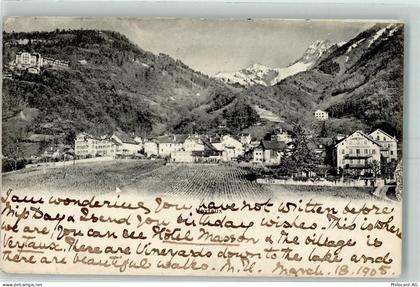 I am wondering you have not written before
May Day & send you birthday wishes. This is where
we are, you can see Hotel Masson & the village is
Veytaux. There are Vineyards down to the lake and
there are beautiful walks. March 18. 1905